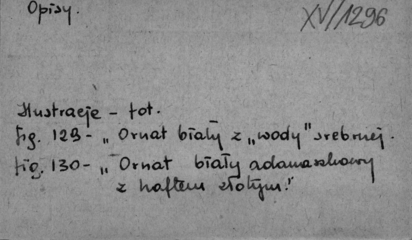 Opisy.
XV/1296
Ilustracje - fot.
fig. 129 - „Ornat biały z „wody" srebrnej.
fig. 130 - „Ornat biały adamaszkowy
z haftem złotym."